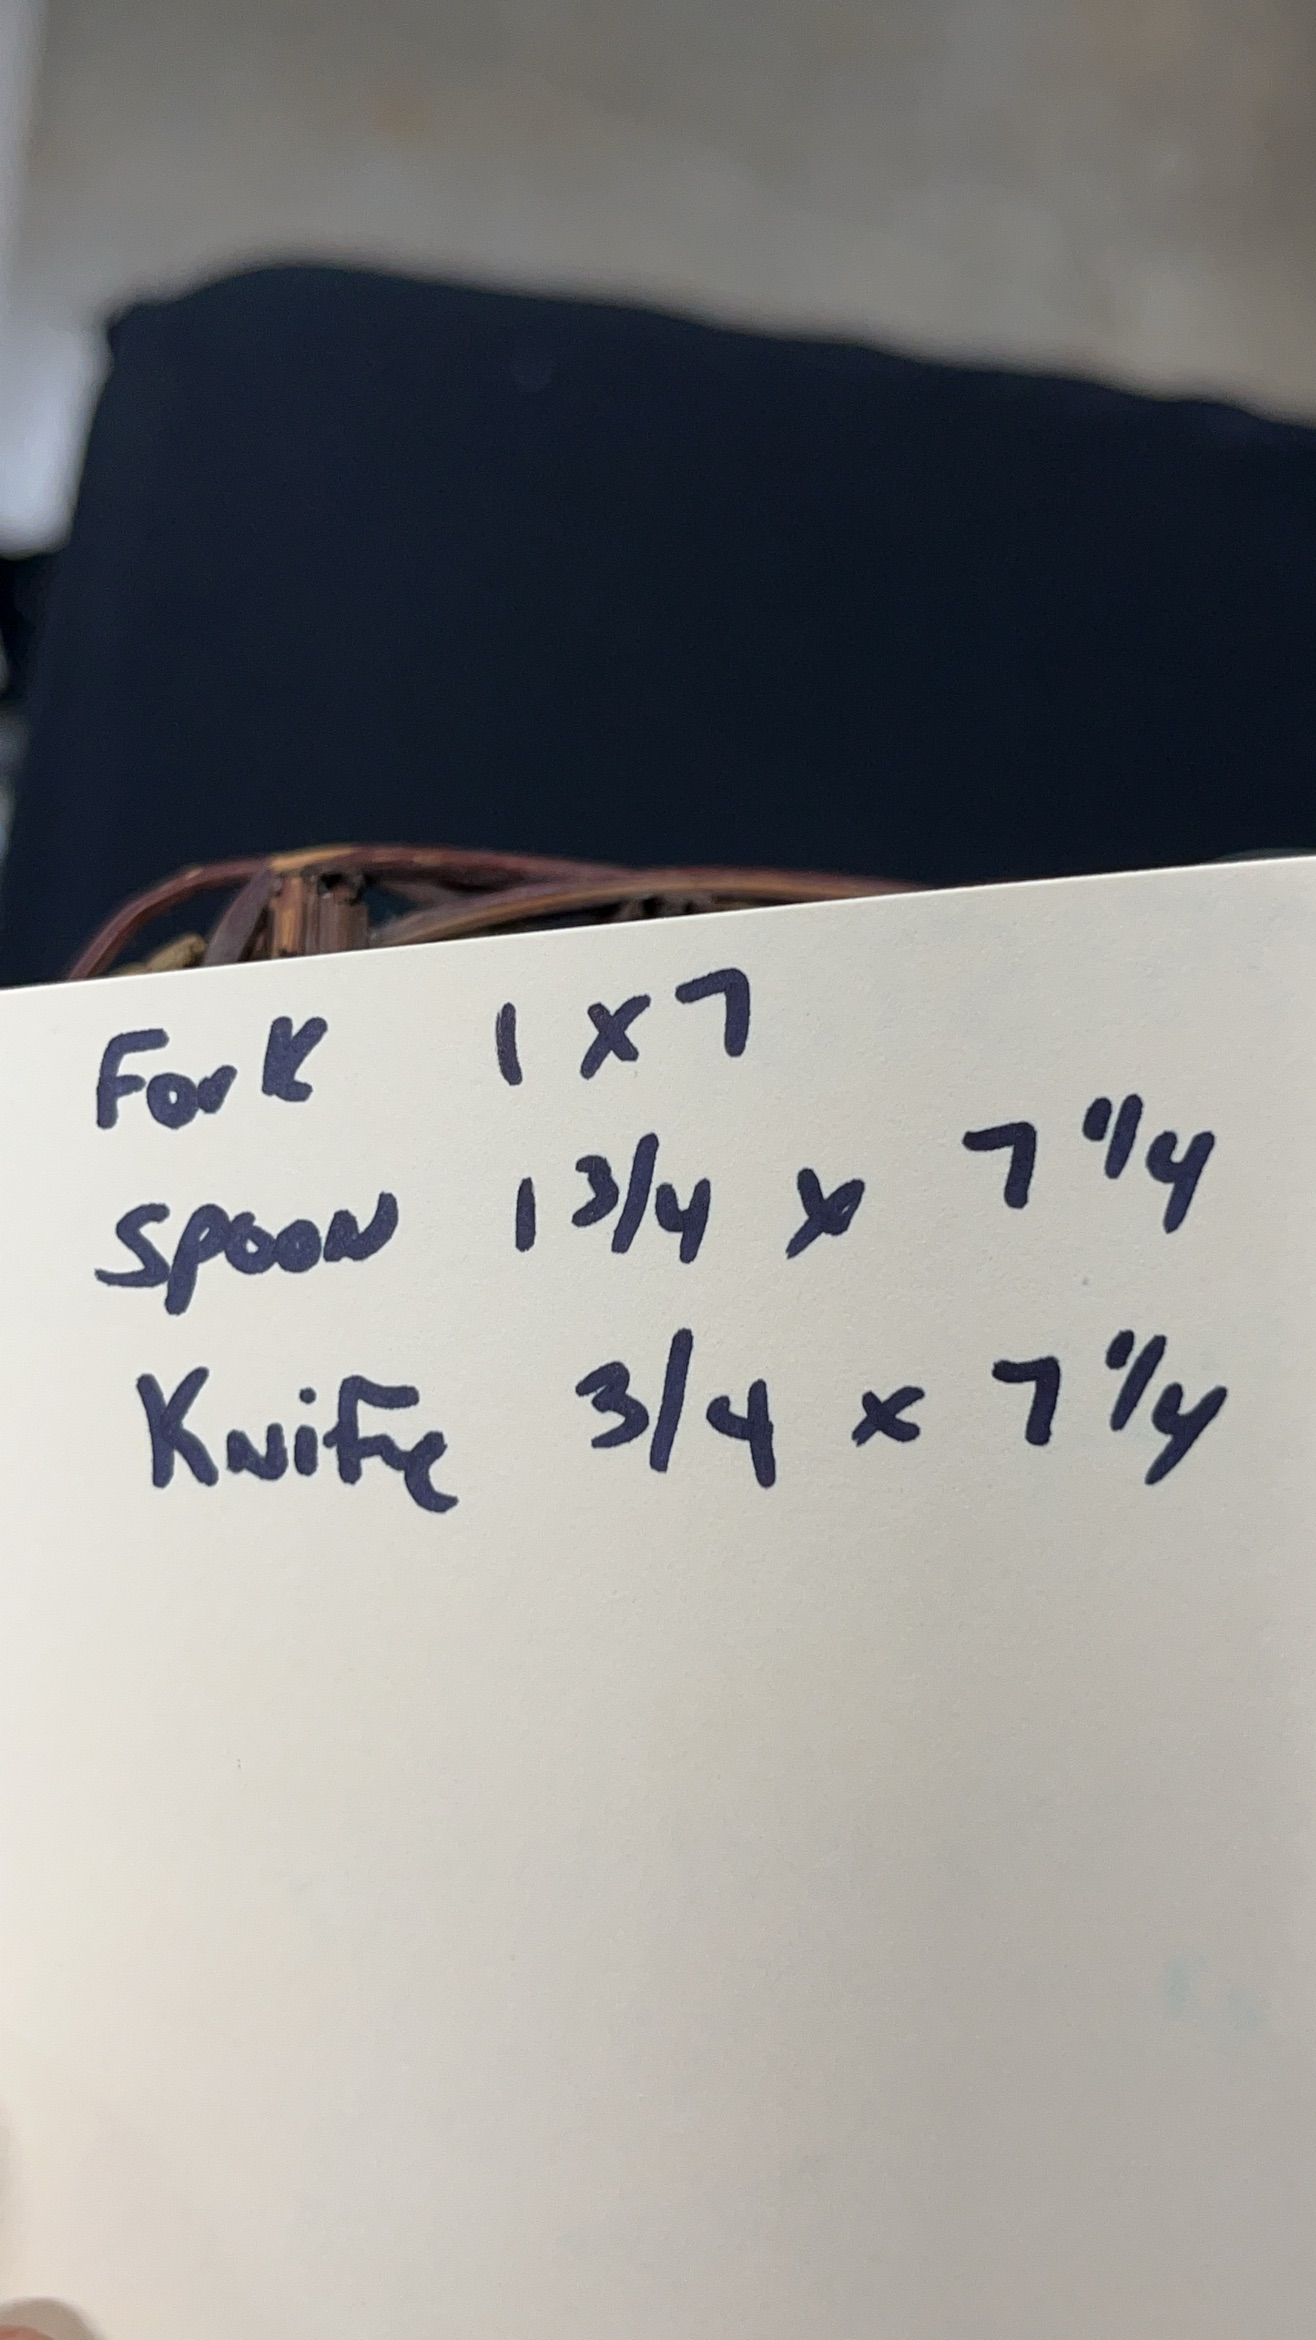 Fork 1 x 7
Spoon 1 3/4 x 7 1/4
Knife 3/4 x 7 1/4